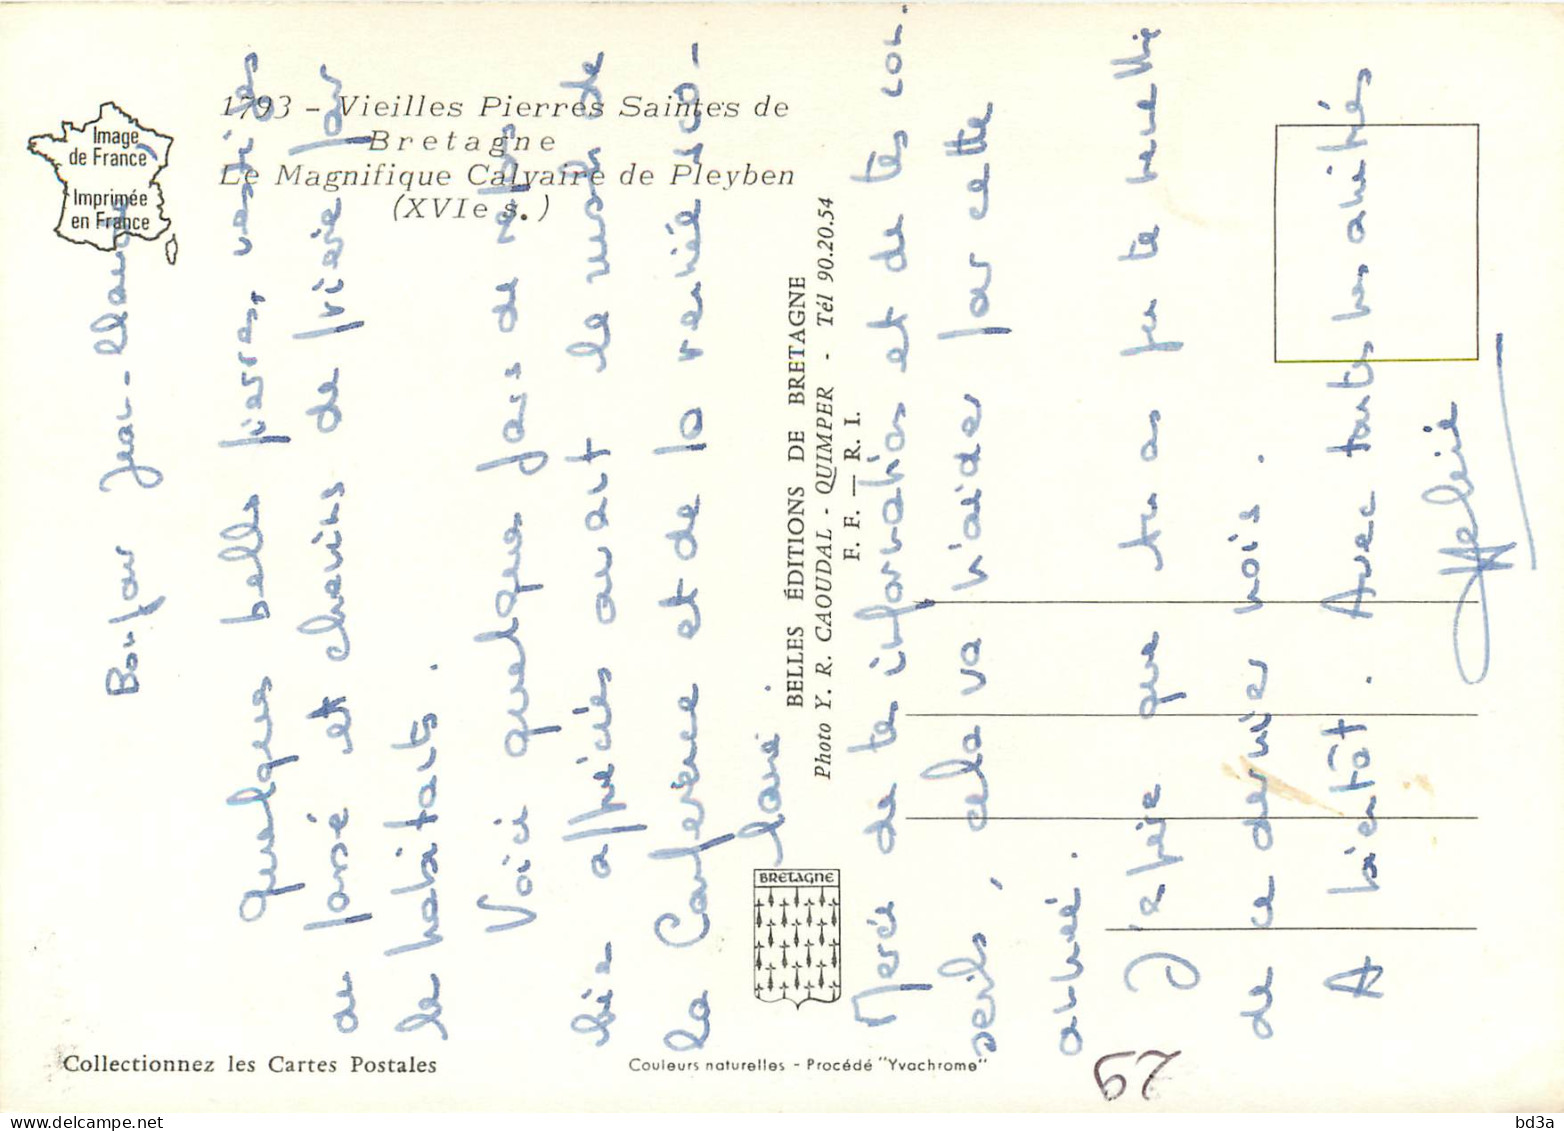 Image
de France
Imprimée
en France
1793 - Vieilles Pierres Saintes de
Bretagne
Le Magnifique Calvaire de Pleyben
(XVIe s.)
BELLES ÉDITIONS DE BRETAGNE
Photo Y. R. CAOUDAL - QUIMPER - Tél 90.20.54
F. F. — R. I.
BRETAGNE
Collectionnez les Cartes Postales
Couleurs naturelles - Procédé "Yvachrome"
Bonjour Jean-Claude
quelques belles pierres, vestiges
de passé et chemins de prière par
le habitants.
Voici quelques jours de repos
bien appréciés avant le rush de
la Conférence et de la rentrée sco-
laire.
Merci de tes informations et de tes con-
seils, cela va m'aider pour cette
année.
J'espère que tu as pu te remettre
de ce dernier mois.
A bientôt. Avec toutes mes amitiés
52
bd3a